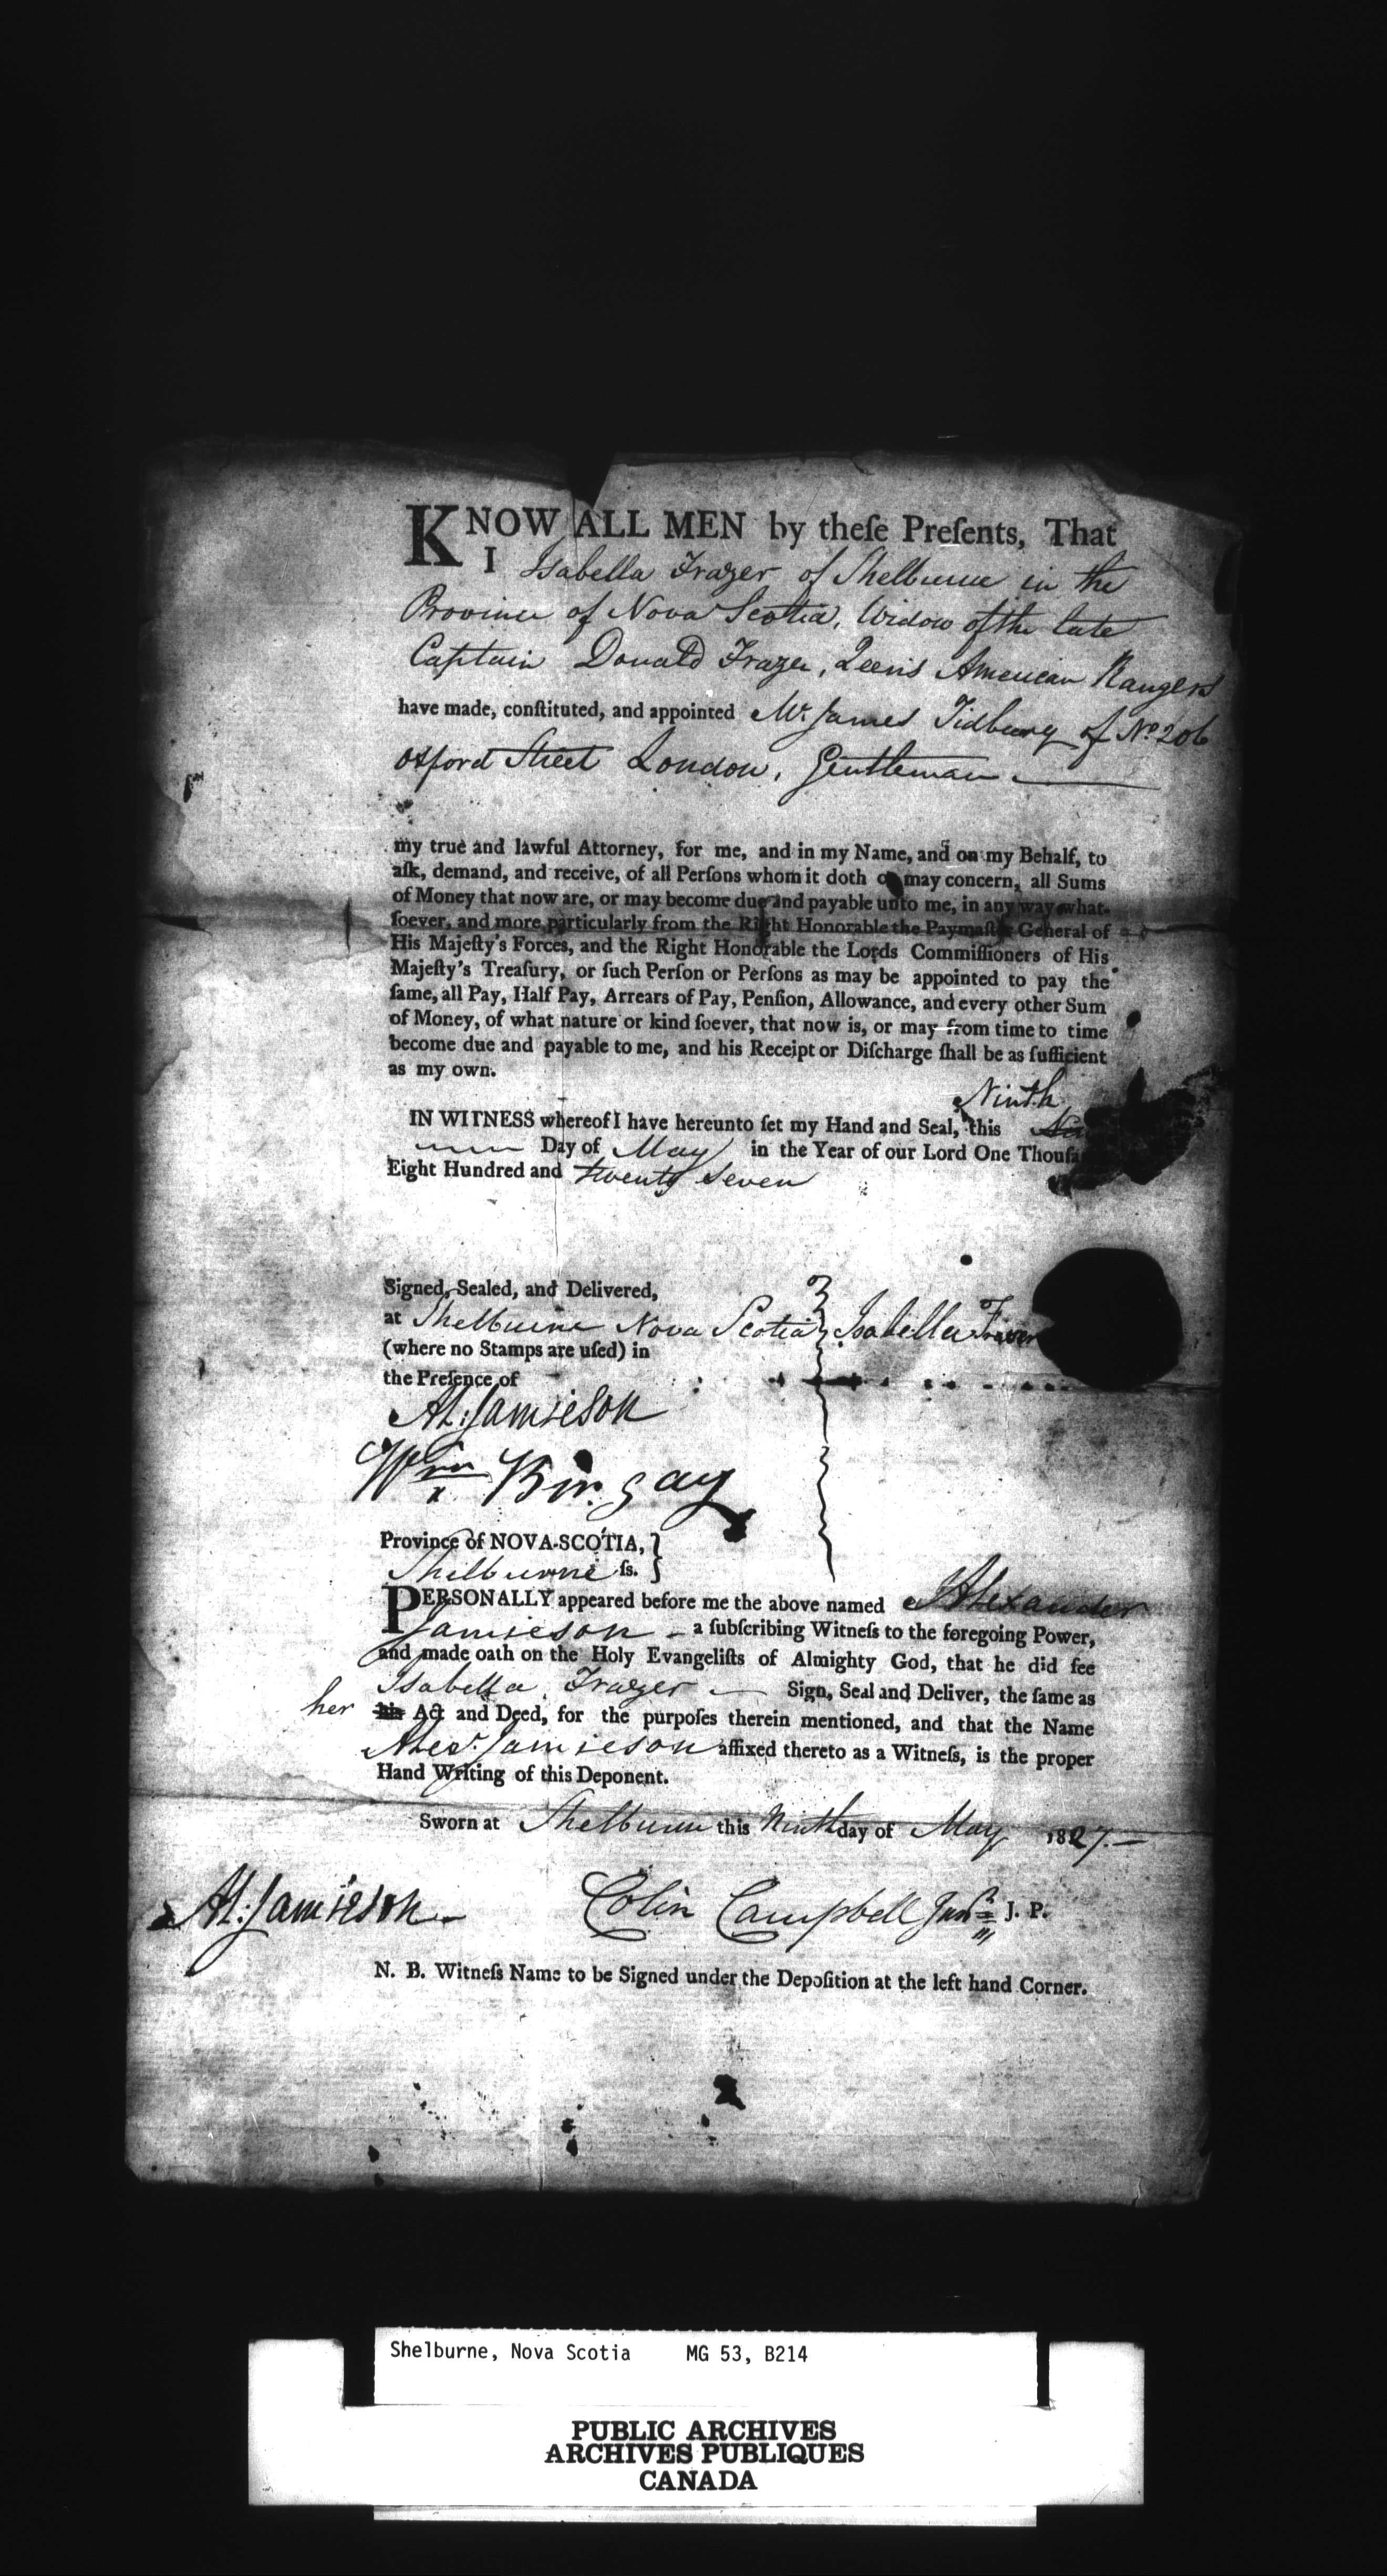 KNOW ALL MEN by theſe Preſents, That
I Isabella Frazer of Shelburne in the
Province of Nova Scotia, Widow of the late
Captain Donald Frazer, Queens American Rangers
have made, conſtituted, and appointed Mr. James Tidbury of No. 206
Oxford Street London, Gentleman
my true and lawful Attorney, for me, and in my Name, and on my Behalf, to
aſk, demand, and receive, of all Perſons whom it doth or may concern, all Sums
of Money that now are, or may become due and payable unto me, in any way what-
ſoever, and more particularly from the Right Honorable the Paymaſter General of
His Majeſty's Forces, and the Right Honorable the Lords Commiſſioners of His
Majeſty's Treaſury, or ſuch Perſon or Perſons as may be appointed to pay the
ſame, all Pay, Half Pay, Arrears of Pay, Penſion, Allowance, and every other Sum
of Money, of what nature or kind ſoever, that now is, or may from time to time
become due and payable to me, and his Receipt or Diſcharge ſhall be as ſufficient
as my own.
Ninth
IN WITNESS whereof I have hereunto ſet my Hand and Seal, this
Day of May in the Year of our Lord One Thouſa
Eight Hundred and twenty seven
Signed, Sealed, and Delivered,
at Shelburne Nova Scotia Isabella Frazer
(where no Stamps are uſed) in
the Preſence of
Al: Jamieson
Wm Bingay
Province of NOVA-SCOTIA, }
Shelburne ſs. }
PERSONALLY appeared before me the above named Alexander
Jamieson - a ſubſcribing Witneſs to the foregoing Power,
and made oath on the Holy Evangeliſts of Almighty God, that he did ſee
Isabella Frazer — Sign, Seal and Deliver, the ſame as
her his Act and Deed, for the purpoſes therein mentioned, and that the Name
Alexr. Jamieson affixed thereto as a Witneſs, is the proper
Hand Writing of this Deponent.
Sworn at Shelburne this Ninth day of May 1827.—
Al: Jamieson Colin Campbell Junr J. P.
N. B. Witneſs Name to be Signed under the Depoſition at the left hand Corner.
Shelburne, Nova Scotia MG 53, B214
PUBLIC ARCHIVES
ARCHIVES PUBLIQUES
CANADA